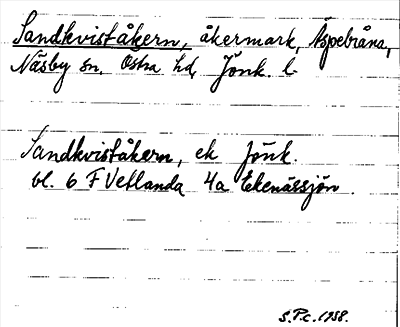 Sandkviståkern, åkermark, Äspebråna,
Näsby sn. Östra hd, Jönk. l.
Sandkviståkern, ek Jönk.
bl. 6 F Vetlanda 4a Ekenässjön.
S.P.c. 1958.